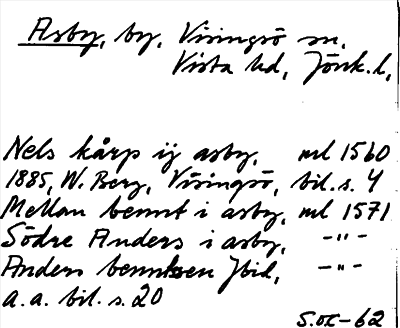 Asby, by, Visingsö sn.
Vista hd, Jönk.l.
Nels kårp ij asby, ml 1560
1885, W. Berg, Visingsö, bil. s. 4
Mellan bennt i asby, ml 1571
Södre Anders i asby, -"-
Anders benntsen Jbid, -"-
a.a. bil. s. 20
S.O.-62